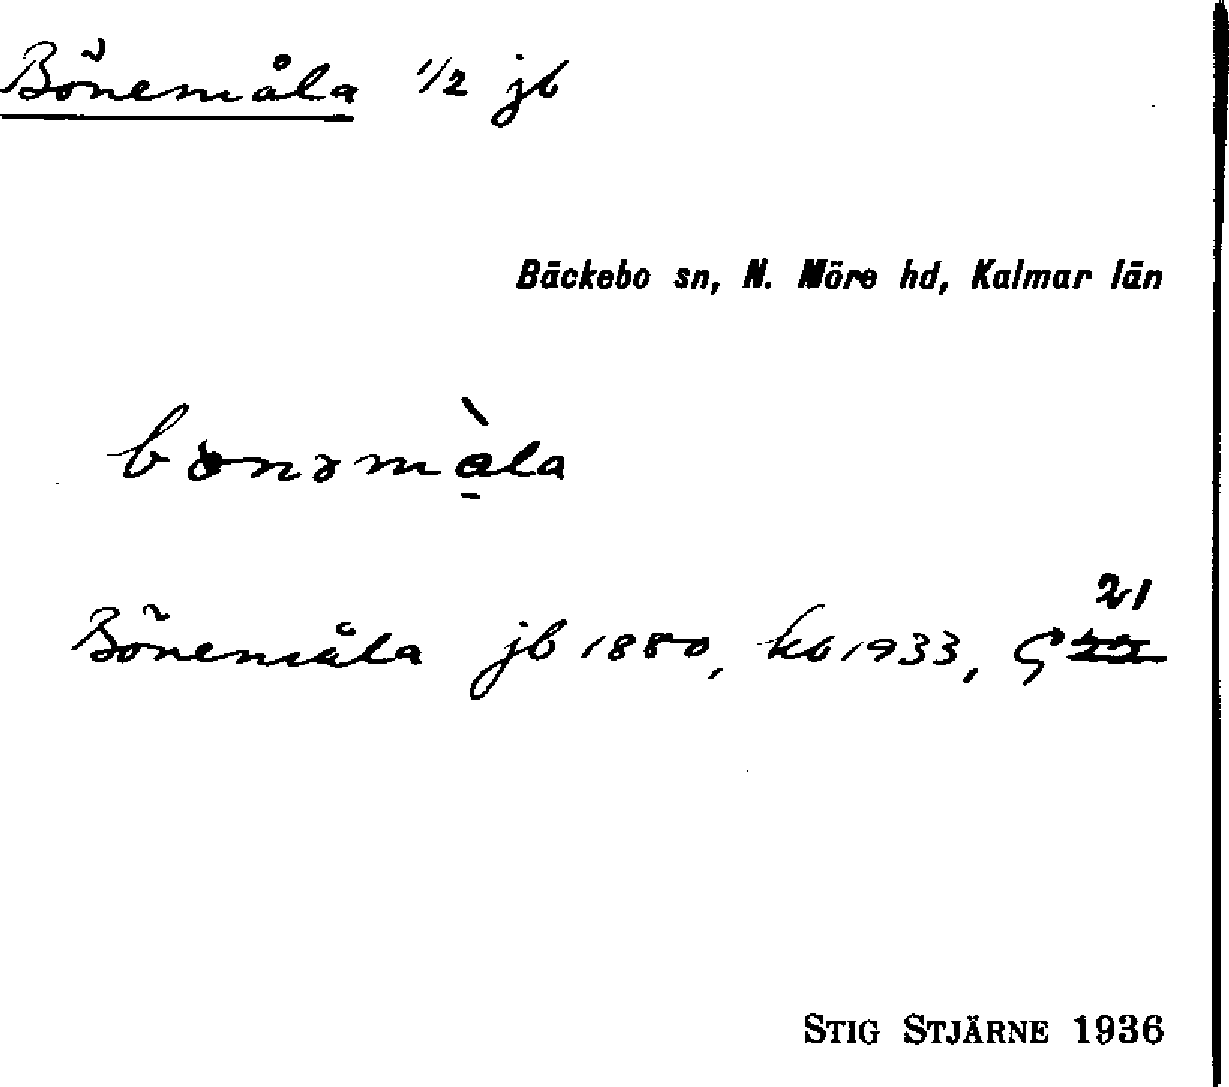 Bönemåla 1/2 jb
Bäckebo sn, N. Möre hd, Kalmar län
21
Bönemåla jb 1880, kb 1933,
STIG STJÄRNE 1936